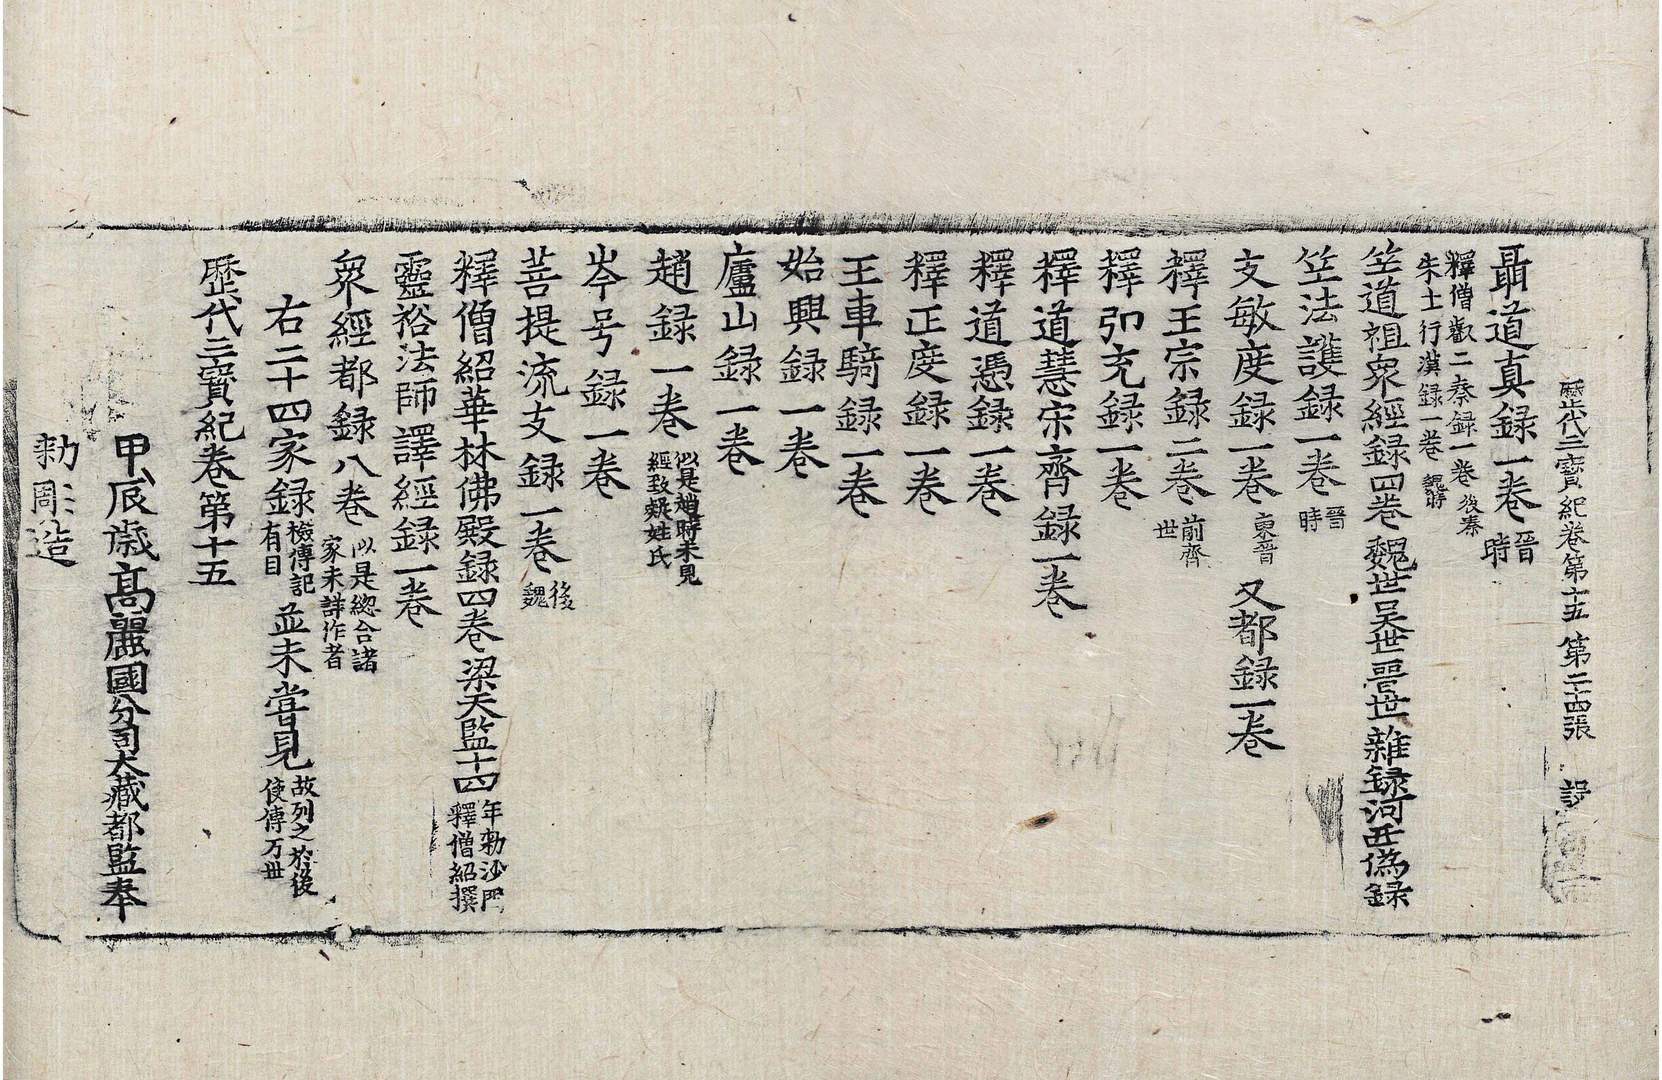 歷代三寶紀卷第十五 第二十四張
聶道真録一卷 晉時
釋僧叡二秦録一卷 後秦
朱士行漢録一卷 魏時
竺道祖衆經録四卷 魏世吳世晉世雜録河西偽録
竺法護録一卷 晉時
支敏度録一卷 東晉 又都録一卷
釋王宗録二卷 前齊世
釋弘充録一卷
釋道慧宋齊録一卷
釋道憑録一卷
釋正度録一卷
王車騎録一卷
始興録一卷
廬山録一卷
趙録一卷 似是趙時未見經致疑姓氏
岑号録一卷
菩提流支録一卷 後魏
釋僧紹華林佛殿録四卷 梁天監十四年勑沙門釋僧紹撰
靈裕法師譯經録一卷
衆經都録八卷 似是總合諸家未詳作者
右二十四家録 檢傳記有目 並未甞見 故列之於後使傳万世
歷代三寶紀卷第十五
甲辰歲高麗國分司大藏都監奉
勑彫造